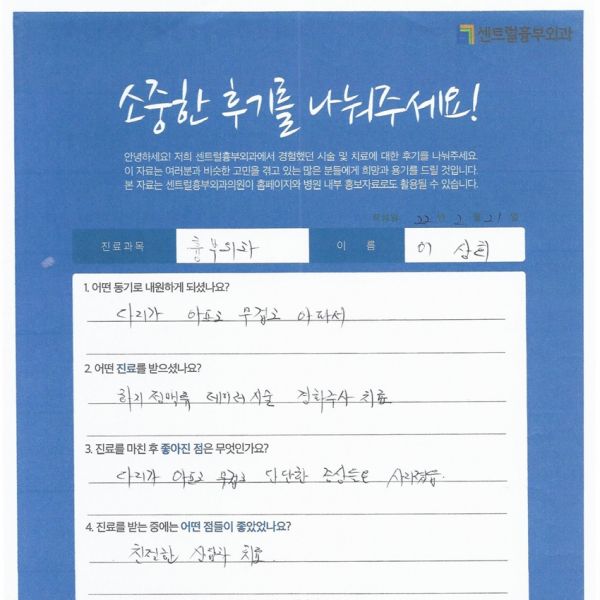 센트럴흉부외과
소중한 후기를 나눠주세요!
안녕하세요! 저희 센트럴흉부외과에서 경험했던 시술 및 치료에 대한 후기를 나눠주세요
이 자료는 여러분과 비슷한 고민을 겪고 있는 많은 분들에게 희망과 용기를 드릴 것입니다.
본 자료는 센트럴흉부외과의원이 홈페이지와 병원 내부 홍보자료로도 활용될 수 있습니다.
작성일 22 년 2 월 21 일
진료과목 흉부외과 이 름 이
1. 어떤 동기로 내원하게 되셨나요?
다리가 아프고 무겁고 아파서
2. 어떤 진료를 받으셨나요?
하지정맥류 레이저시술 경화주사 치료
3. 진료를 마친 후 좋아진 점은 무엇인가요?
다리가 아프고 무겁고 단단한 증상들은 사라졌음.
4. 진료를 받는 중에는 어떤 점들이 좋았었나요?
친절한 치료.